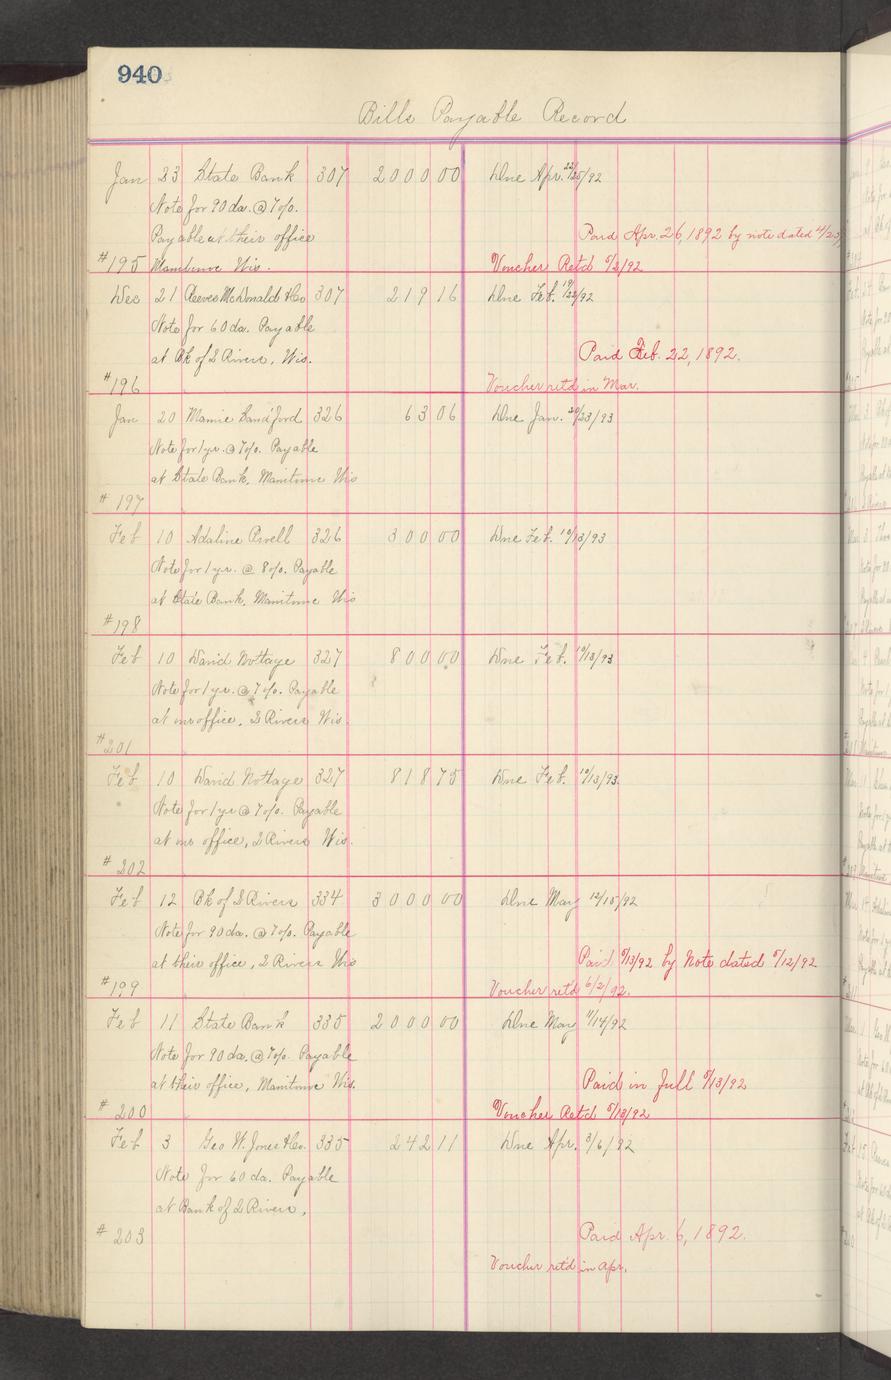 940
Bills Payable Record
Jan 23 State Bank 307 2000 00 Due Apr. 22/25/92
Note for 90 da. @ 7%.
Payable at their office Paid Apr. 26, 1892 by note dated 4/23/
#195 Manitowoc Wis. Voucher Retd 5/2/92
Dec 21 Reeves McDonald & Co 307 219 16 Due Feb. 19/22/92
Note for 60 da. Payable
at Bk of 2 Rivers, Wis. Paid Feb. 22, 1892.
#196 Voucher retd in Mar.
Jan 20 Mamie Sandford 326 63 06 Due Jan. 20/23/93
Note for 1 yr. @ 7%. Payable
at State Bank, Manitowoc Wis
#197
Feb 10 Adaline 326 300 00 Due Feb. 10/13/93
Note for 1 yr. @ 8%. Payable
at State Bank, Manitowoc Wis
#198
Feb 10 David Nottage 327 800 00 Due Feb. 10/13/93
Note for 1 yr. @ 7%. Payable
at our office, 2 Rivers Wis.
#201
Feb 10 David Nottage 327 818 75 Due Feb. 10/13/93.
Note for 1 yr @ 7%. Payable
at our office, 2 Rivers Wis.
#202
Feb 12 Bk of 2 Rivers 334 3000 00 Due May 12/15/92
Note for 90 da. @ 7%. Payable
at their office, 2 Rivers Wis Paid 5/13/92 by Note dated 5/12/92
#199 Voucher retd 6/2/92.
Feb 11 State Bank 335 2000 00 Due May 11/14/92
Note for 90 da. @ 7%. Payable
at their office, Manitowoc Wis. Paid in full 5/13/92
#200 Voucher Retd 5/13/92
Feb 3 Geo W. Jones & Co. 335 242 11 Due Apr. 3/6/92
Note for 60 da. Payable
at Bank of 2 Rivers,
#203 Paid Apr. 6, 1892.
Voucher retd in Apr.